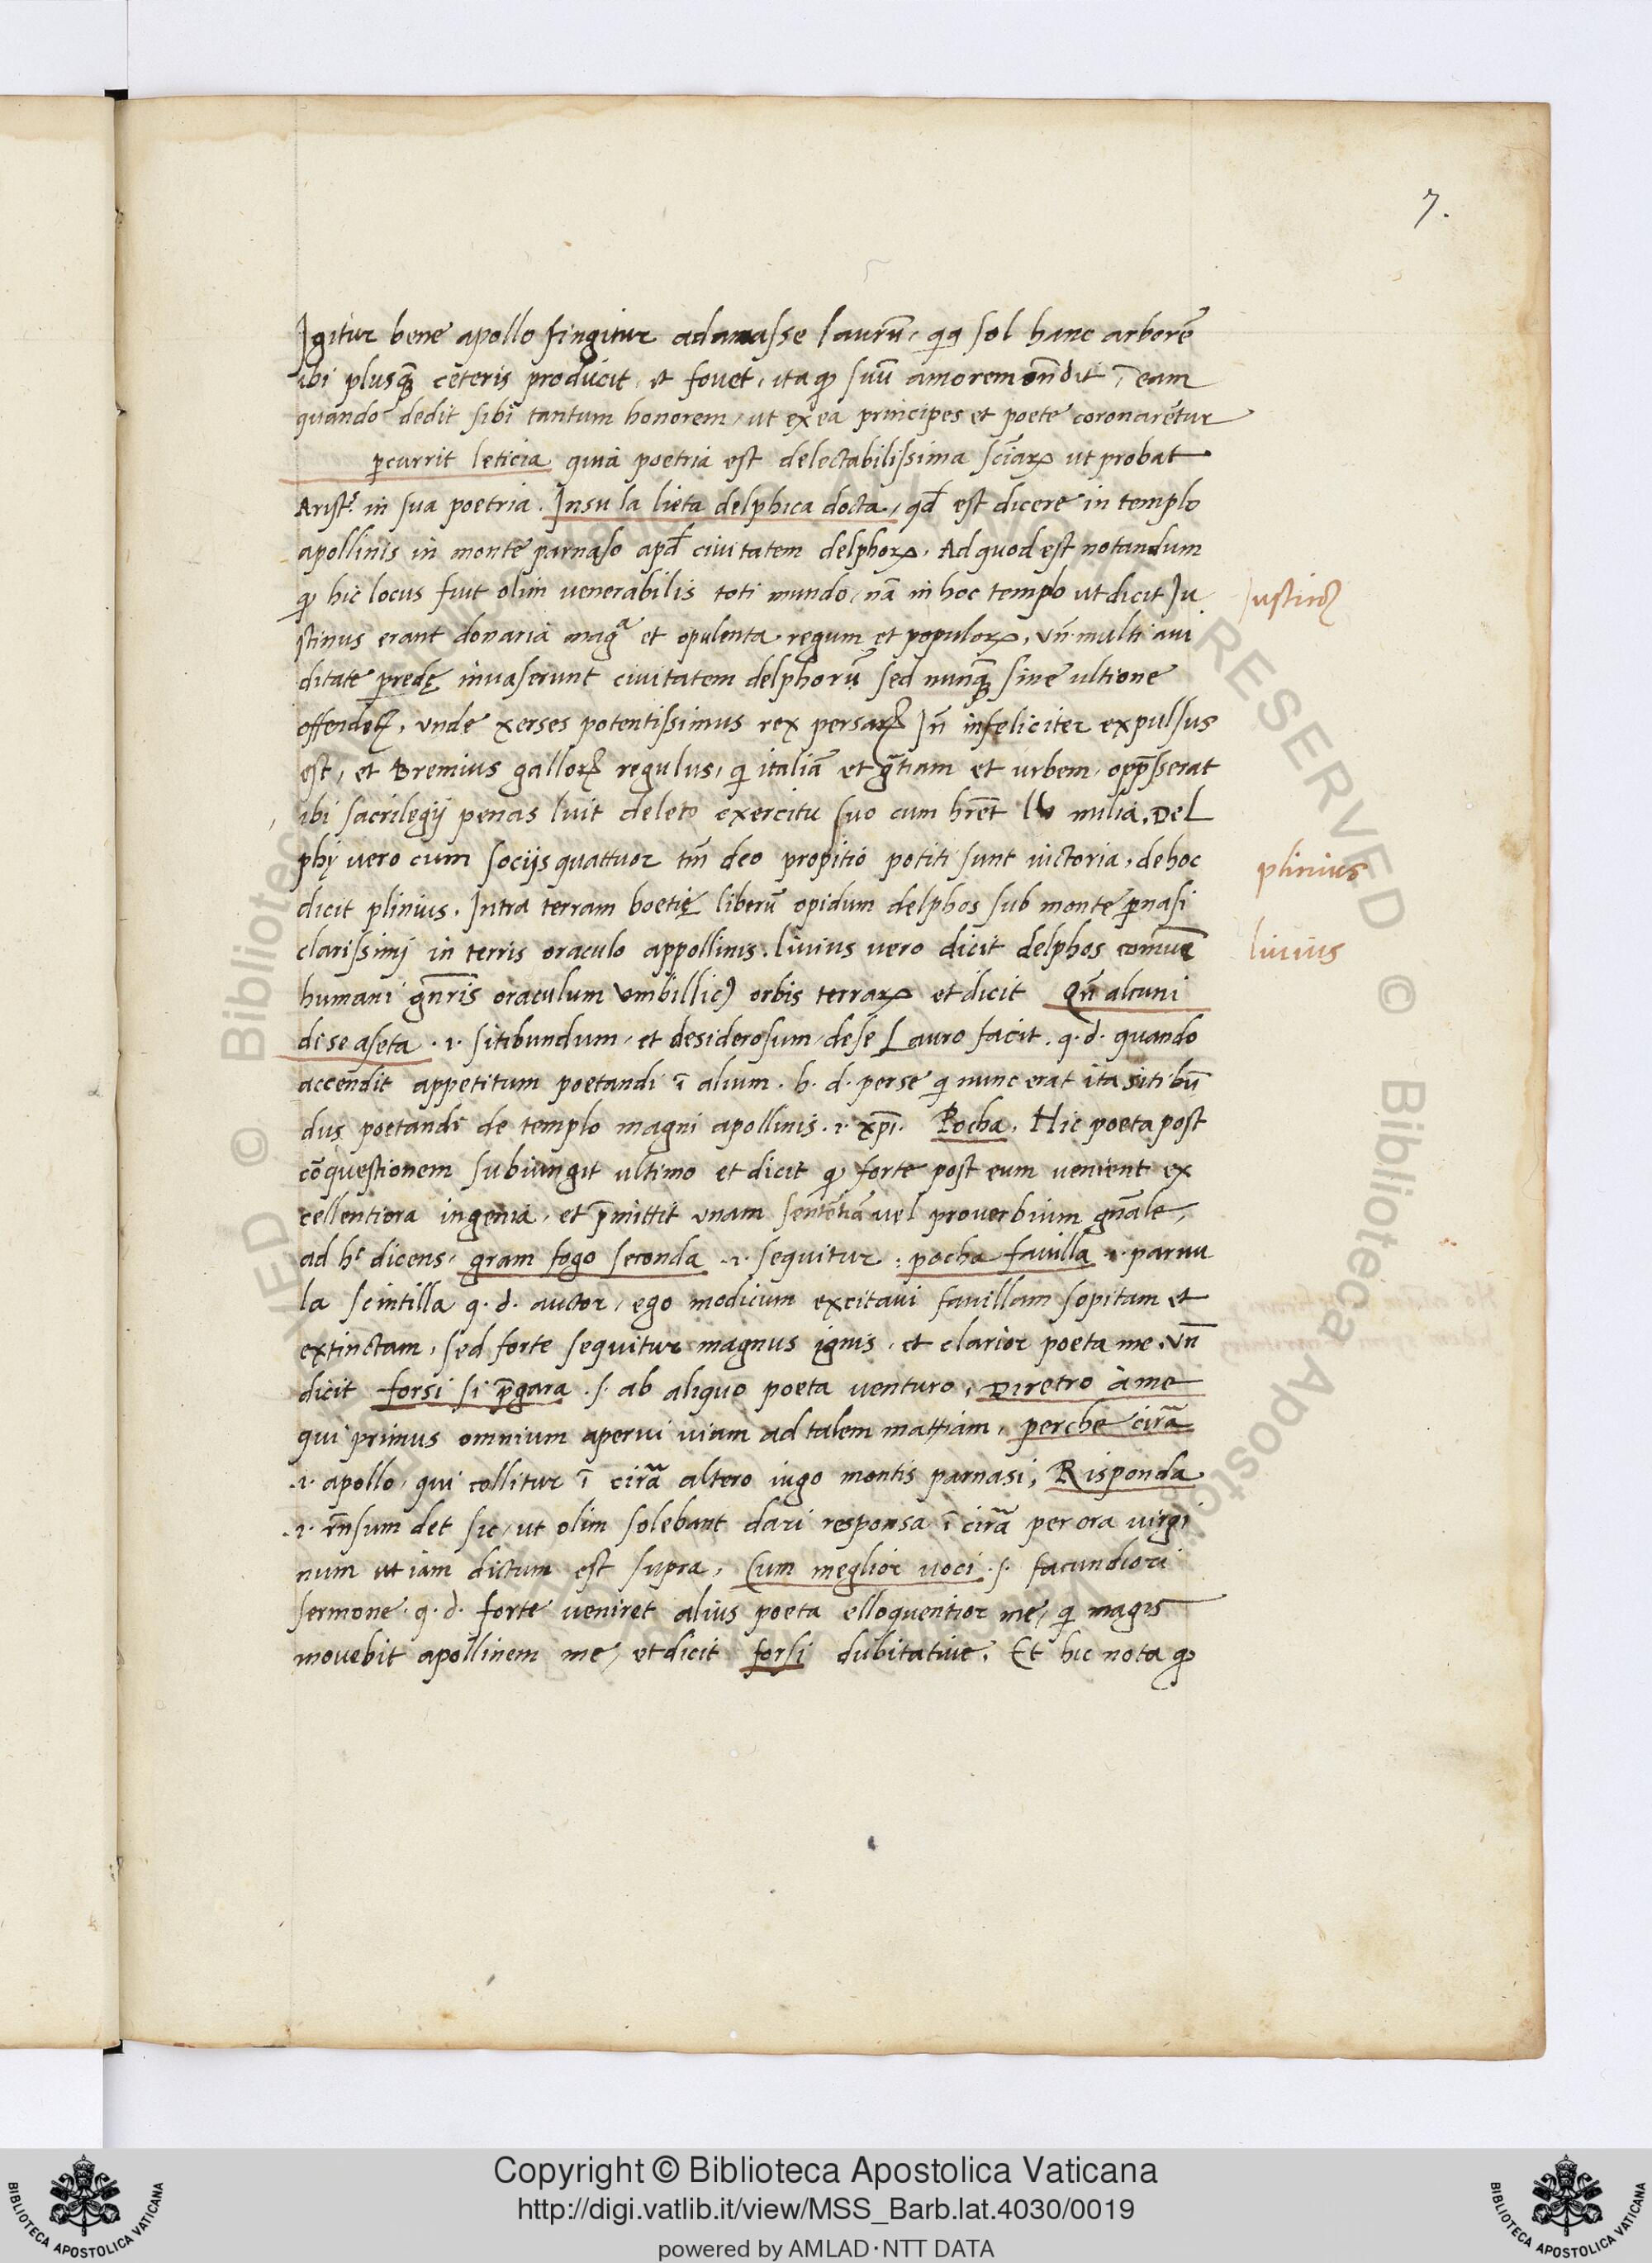 7.
Igitur bene apollo fingitur adamasse laurū, qiq sol hanc arborē
ibi plusqȝ cēteris producit, et fovet, itaqꝫ suū amorem on̄dit ī eam
quando dedit sibi tantum honorem, ut ex ea principes et poete coronarētur
ꝑcurrit leticia quia poetria est delectabilissima sciāꝝ ut probat
Aristᵉ. in sua poetria. Insu la lieta delphica docta, qd̄ est dicere in templo
apollinis in monte parnaso apd̄ civitatem delphoꝝ. Ad quod est notandum
ꝙ hic locus fuit olim venerabilis toti mundo, nā in hoc templo ut dicit Ju
Justinꝰ
stinus erant donaria magᵃ et opulenta regum et populoꝝ, vn̄ multi aui
ditate predę invaserunt civitatem delphorū sed nunqȝ sine ultione
offendeꝝ, unde xerses potentissimus rex persaꝝ In̄ infeliciter expulsus
est, et Bremius galloꝝ regulus, qi italiā et grātiam et urbem, opp̄sserat
ibi sacrilegij penas luit deleto exercitu suo cum hr̄et milia. Del
phy vero cum socijs quattuor tm̄ deo propitio potiti sunt victoria, de hoc
plinius
dicit plinius. Intra terram boetię liberū opidum delphos sub monte ꝑnasi
clarissimj in terris oraculo appollinis. livius vero dicit delphos comuē
livius
humani gn̄ris oraculum umbillicꝰ orbis terraꝝ et dicit Qn̄ alcuni
di se aseta .i. sitibundum, et desiderosum, de se Lauro facit. q. d. quando
accendit appetitum poetandi ī alium. h. d. per se qi nunc erat ita sitibū
dus poetandi de templo magni apollinis .i. xp̄i. Pocha. Hic poeta post
cōquestionem subiungit ultimo et dicit ꝙ forte post eum venient ex
cellentiora ingenia, et p̄mittit vnam sentētiā vel proverbium gn̄ale,
ad hᵉ dicens, gram fogo seconda .i. sequitur, pocha favilla .i. parvu
la scintilla q. d. auctor, ego modicum excitavi favillam sopitam et
extinctam, sed forte sequitur magnus ignis, et clarior poeta me. Vn̄
dicit forsi si p̄gara .s. ab aliquo poeta venturo, Diretro à me
qui primus omnium aperui viam ad talem mat̄iam, perche cirā
.i. apollo, qui collitur ī cirā altero iugo montis parnasi, Risponda
.i. rn̄sum det sic, ut olim solebant dari responsa ī cirā per ora virgi
num ut iam dictum est supra, Cum meglior voci .s. facundiori
sermone. q. d. forte veniret alius poeta elloquentior me, qi magis
movebit apollinem me, et dicit forsi dubitative. Et hic nota ꝙ
Copyright © Biblioteca Apostolica Vaticana
http://digi.vatlib.it/view/MSS_Barb.lat.4030/0019
powered by AMLAD·NTT DATA
BIBLIOTECA APOSTOLICA VATICANA
BIBLIOTECA APOSTOLICA VATICANA